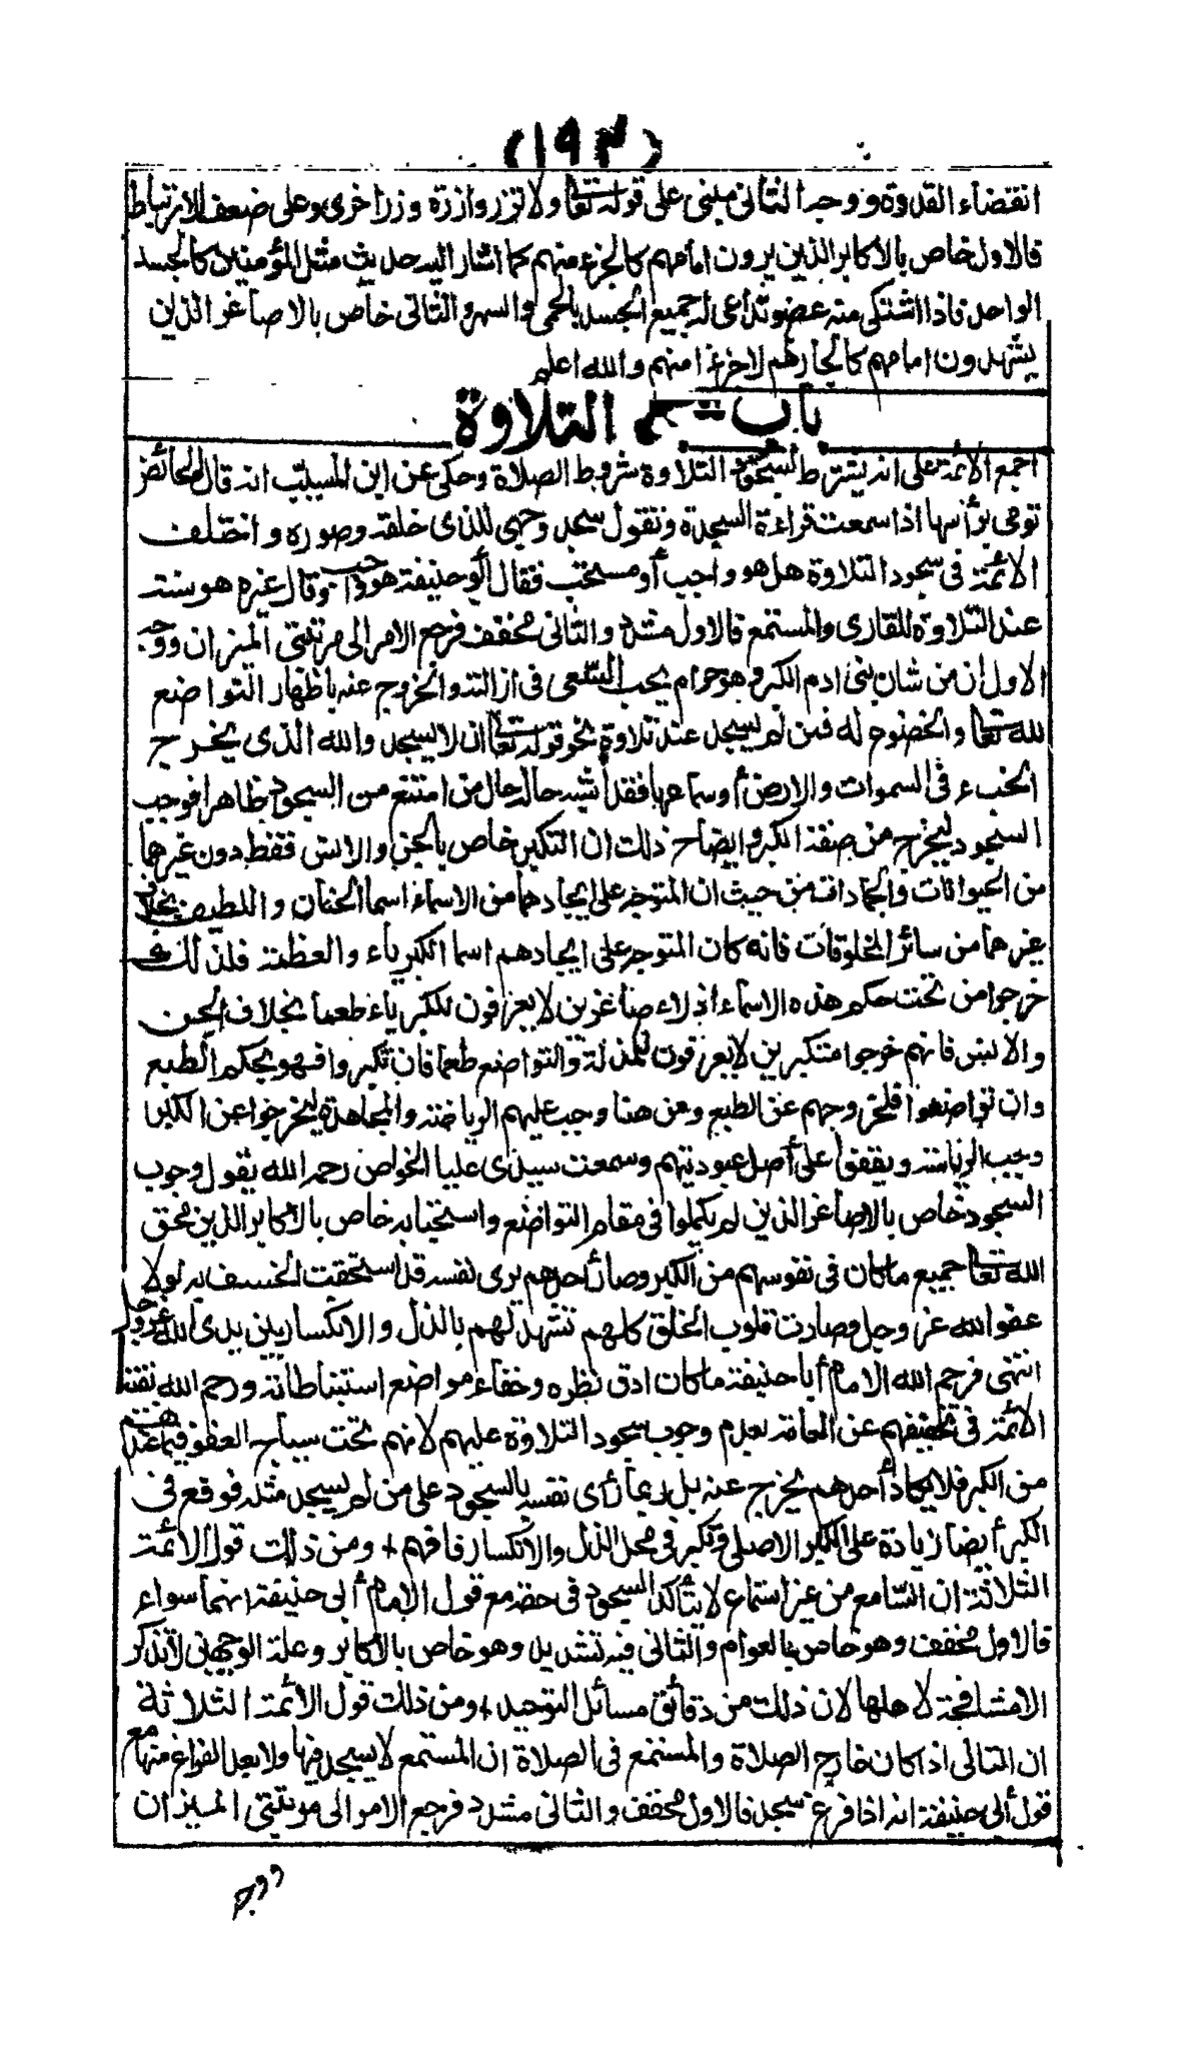 (١٩٣)
انقضاء القدوة ووجه الثانى مبنى على قوله تعالى ولا تزر وازرة وزر اخرى وعلى ضعف الارتباط
فالاول خاص بالاكابر الذين يرون امامهم كالجزء منهم كما اشار اليه حديث مثل المؤمنين كالجسد
الواحد فاذا اشتكى منه عضو تداعى له جميع الجسد بالحمى والسهر والثانى خاص بالاصاغر الذين
يشهدون امامهم كالجار لهم لا جزءا منهم والله اعلم
باب سجود التلاوة
اجمع الائمة على انه يشترط لسجود التلاوة شروط الصلاة وحكى عن ابن المسيب انه قال الحائض
تومى برأسها اذا سمعت قراءة السجدة وتقول سجد وجهى للذى خلقه وصوره واختلف
الائمة فى سجود التلاوة هل هو واجب أو مستحب فقال أبو حنيفة هو واجب وقال غيره هو سنة
عند التلاوة للقارى والمستمع فالاول مشدد والثانى مخفف فرجع الامر الى مرتبتى الميزان ووجه
الاول ان من شان بنى ادم الكبر وهو حرام يجب السعى فى ازالته والخروج عنه باظهار التواضع
لله تعالى والخضوع له فمن لم يسجد عند تلاوة نحو قوله تعالى ان لا يسجد والله الذى يخرج
الخبء فى السموات والارض أو سماعها فقد أشبه حاله حال من امتنع من السجود ظاهرا فوجب
السجود ليخرج من صفة الكبر وايضاح ذلك ان التكبر خاص بالجن والانس فقط دون غيرهما
من الحيوانات والجمادات من حيث ان المتوجه على ايجادهما من الاسماء اسما الحنان واللطيف بخلاف
غيرهما من سائر المخلوقات فانه كان المتوجه على ايجادهم اسما الكبرياء والعظمة فلذلك
خرجوا من تحت حكم هذه الاسماء أذلاء صاغرين لا يعرفون للكبرياء طعما بخلاف الجن
والانس فانهم خرجوا متكبرين لا يعرفون للمذلة والتواضع طعما فان تكبروا فهو بحكم الطبع
وان تواضعوا فلخروجهم عن الطبع ومن هنا وجب عليهم الرياضة والمجاهدة ليخرجوا عن الكبر
وحب الرياسة ويقفوا على أصل عبوديتهم وسمعت سيدى عليا الخواص رحمه الله يقول وجوب
السجود خاص بالاصاغر الذين لم يكملوا فى مقام التواضع واستحبابه خاص بالاكابر الذين محق
الله تعالى جميع ما كان فى نفوسهم من الكبر وصار أحدهم يرى نفسه قد استحقت الخسف به لولا
عفو الله عز وجل وصارت قلوب الخلق كلهم تشهد لهم بالذل والانكسار بين يدى الله عز وجل
انتهى فرحم الله الامام أبا حنيفة ما كان ادق نظره وخفاء مواضع استنباطاته ورحم الله بقية
الائمة فى تخفيفهم عن العامة بعدم وجوب سجود التلاوة عليهم لانهم تحت سياج العفو فيما عندهم
من الكبر فلا يكاد أحدهم يخرج عنه بل ربما رأى نفسه بالسجود على من لم يسجد مثله فوقع فى
الكبر أيضا زيادة على الكبر الاصلى فتكبر فى محل الذل والانكسار فافهم + ومن ذلك قول الائمة
الثلاثة ان السامع من غير استماع لا يتأكد السجود فى حقه مع قول الامام أبى حنيفة انهما سواء
فالاول مخفف وهو خاص بالعوام والثانى فيه تشديد وهو خاص بالاكابر وعلة الوجهين لا تذكر
الا مشافهة لاهلها لان ذلك من دقائق مسائل التوحيد + ومن ذلك قول الائمة الثلاثة
ان التالى اذا كان خارج الصلاة والمستمع فى الصلاة ان المستمع لا يسجد فيها ولا بعد الفراغ منها مع
قول أبى حنيفة انه اذا فرغ سجد فالاول مخفف والثانى مشدد فرجع الامر الى مرتبتى الميزان
ووجه